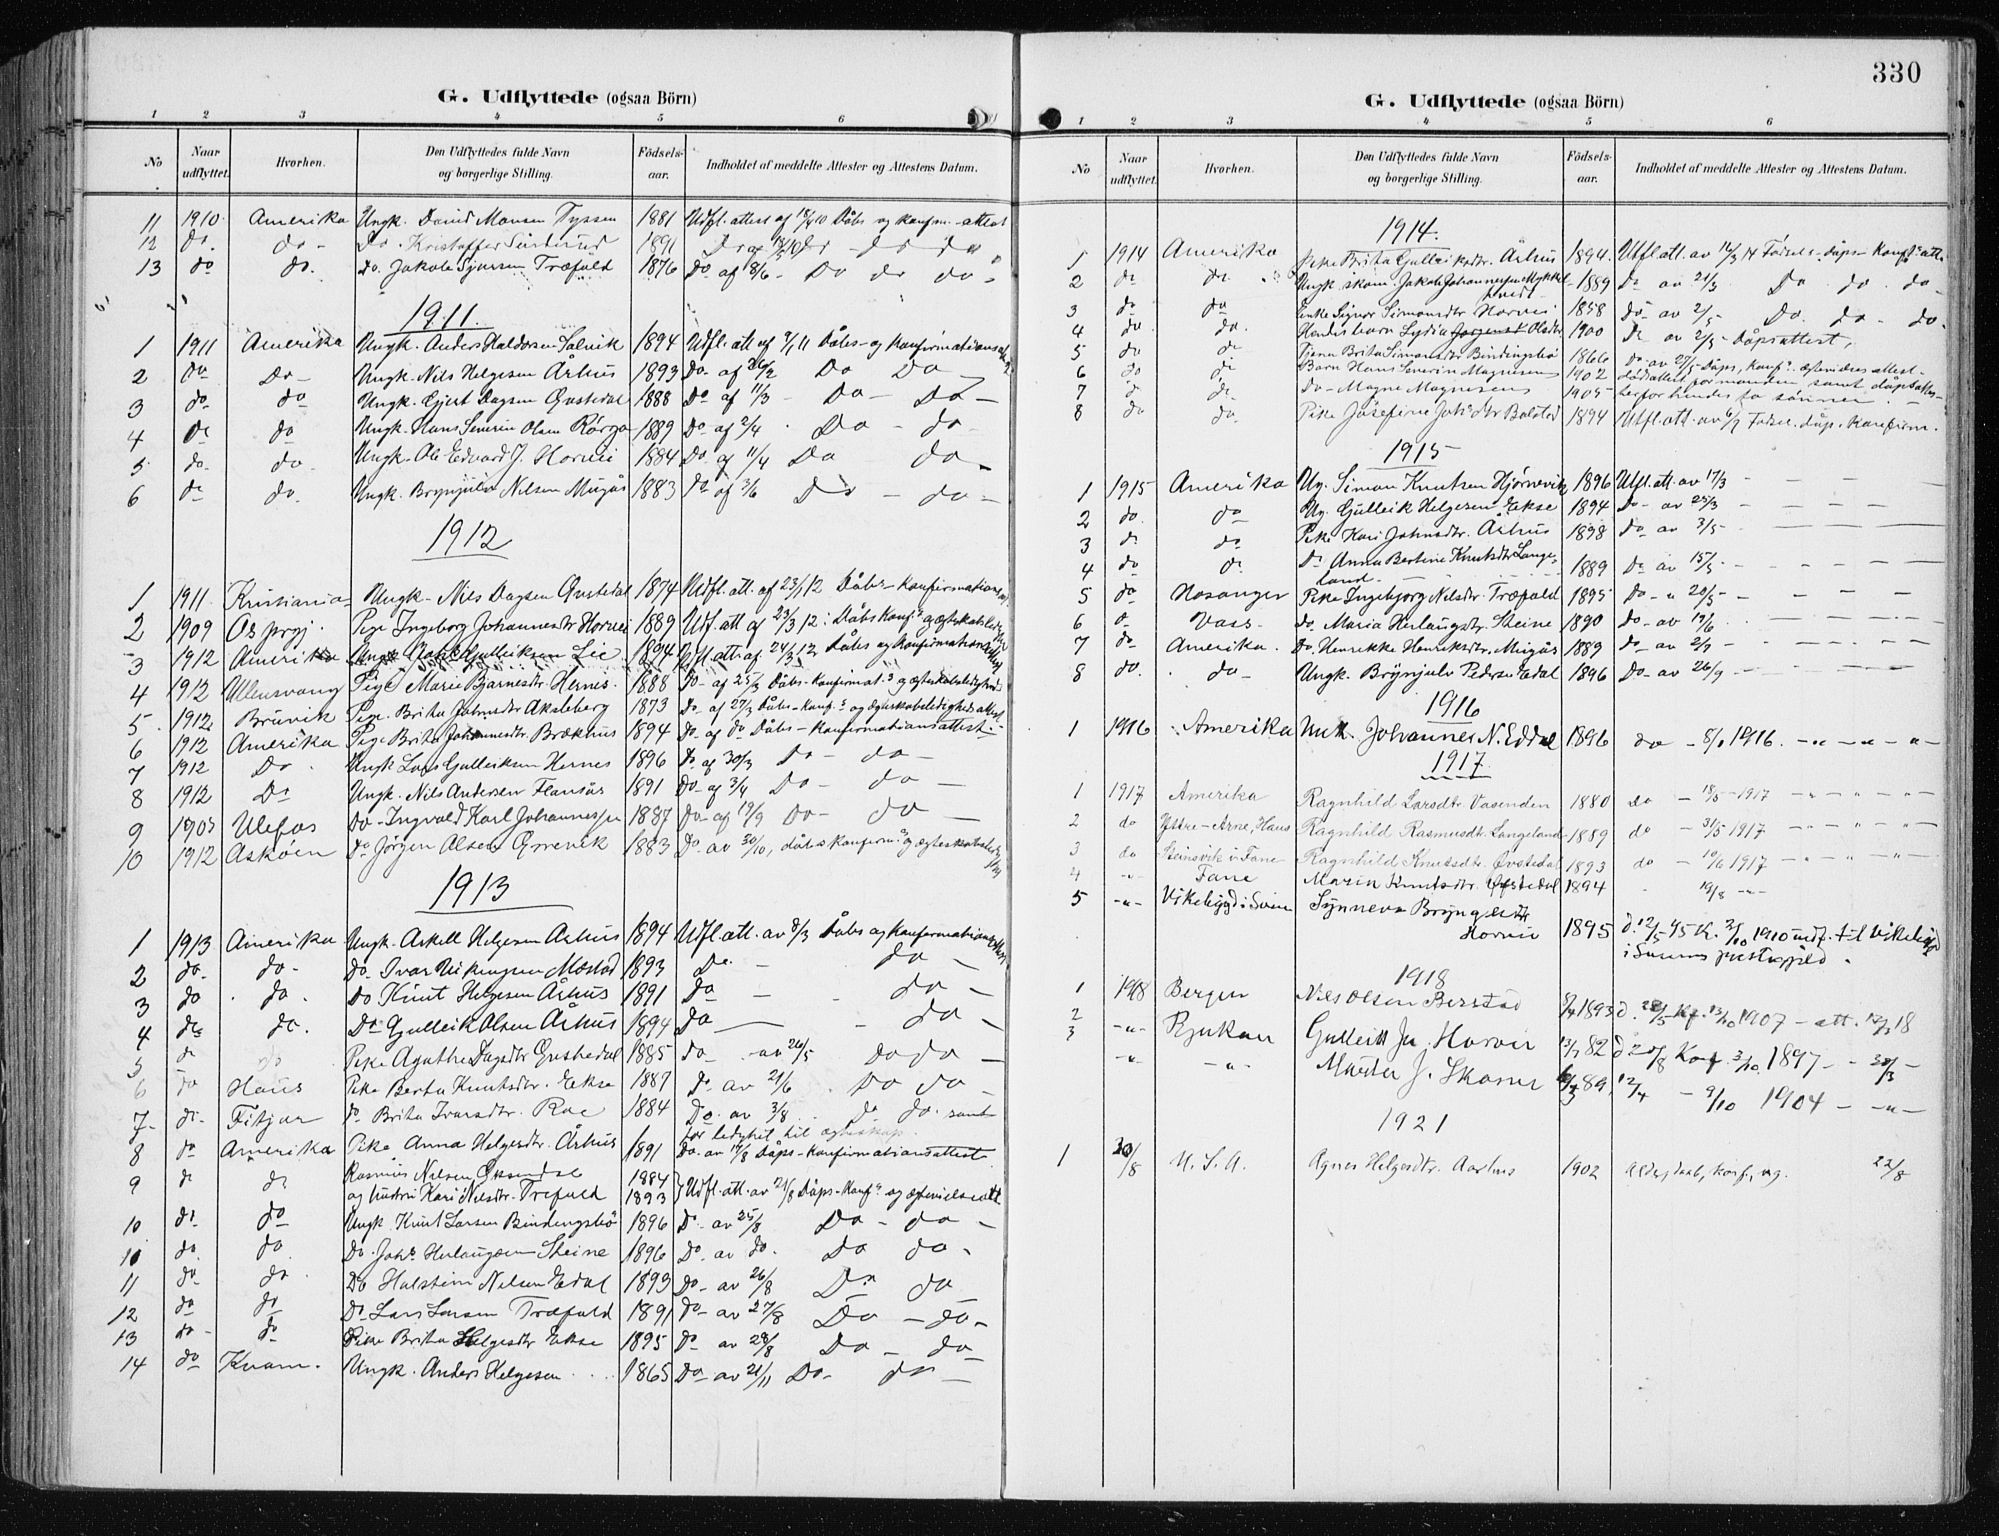 330
G. Udflyttede (ogsaa Börn)
1 2 3 4 5 6
No Naar udflyttet. Hvorhen. Den Udflyttedes fulde Navn og borgerlige Stilling. Födsels-aar. Indholdet af meddelte Attester og Attestens Datum.
11 1910 Amerika Ungk. David Monsen Tyssen 1881 Udfl. attest af 18/4 10 Dåbs og konfirm.-attest
12 do. do - Do. Kristoffer 1891
13 do do. Do. Jakob Sjursen Træfald 1876 Do af 18/6 - Do do do -
1911.
1 1911 Amerika Ungk. Anders Haldorsen Solvik 1894 Udfl. att af 9/1 11 Dåbs- og konfirmations
2 do Do - Ungk. Nils Helgesen Århus 1893 Do af 26/2 Do Do -
3 do do Ungk. Gjert Dagsen Øvstedal 1888 Do af 11/3 - Do - Do -
4 do do Ungk. Hans Severin Olsen 1889 Do af 2/4 . Do - do -
5 do - do. Ungk. Ole Edvard J. Horvei 1884 Do af 11/4 Do do -
6 do do. Ungk. Brynjulv Nilsen Mugås 1883 Do af 3/6 Do - do -
1912
1 1911 Kristiania Ungk. Nils Dagsen Øvstedal 1874 Udfl. att. af 23/1 12 Dåbs - konfirmations
2 1909 Os prgj. Pige Ingeborg Johannesdtr Horvei 1889 Udf. att af 23/3 12: Dåbs konf. og
3 1912 Amerika Ungk. Gulleiksen Lee 1894 Udfl. att. af 24/3 12 Dåbs og konfirmations
4 1912 Ullensvang Pige Marie Bjarnesdtr. Hernes 1888 Do - af 25/3 Dåbs - konfirmat. og
5 1912 Brúvik Pige. Brita Johnsdtr Aksleberg 1873 Do - af 27/3 Dåbs - konf. og
6 1912 Amerika Pige Brita Johannesdtr. Brækhus 1894 Do. af do Dåbs - konfirmationsattest.
7 1912 Do - Ungk Lars Gulleiksen Hernes 1896 Do af 30/3 Do - do -
8 1912 Do Ungk. Nils Andersen 1891 Do - af 3/4 Do - do -
9 1903 Ulefos Do - Ingvald Karl Johannessen 1887 Do - af 19/9 Do - do -
10 1912 Askøen Do Jörgen Olsen 1883 Do. av 30/10, dåbs konfirm. og
1913
1 1913 Amerika Ungk. Askell Helgesen Århus 1894 Udfl. att. av 8/3 Dåbs og konfirmations
2 do - do - do. Ivar Mæstad 1893 Do. - do -
3 do do. Do Knut Helgesen Århus 1891 Do - - do -
4 do do. Do Gulleik Olsen Århus 1894 Do - do -
5 do do Pike Agathe Dagsdtr Øvstedal 1885 do - av 26/5 Do do -
6 do Haus Pike Berta Knutsdtr. Ekse 1887 Do av 21/6 . Do do -
7 do - Fitjar do Brita Ivarsdtr. Rae 1884 Do. av 3/8 . Do do. samt
for ledighet til ægteskap.
8 do Amerika Pike Anna Helgesdtr. Århus 1891 Do. av 14/8 Dåps - konfirmationsattest.
9 do do Rasmus Nilsen 1884
og hustru Kari Nilsdtr. Træfald 1893 } Udfl. att. av 21/8 Dåps - konf. og
10 do do Ungk. Knut Larsen Bindingsbø 1896 Do - av 25/8 Do - do -
10 do. do Do. Johs. Herlaugsen Steine 1896 Do. av do. Do do -
11 do do Do Halstein Nilsen Edal 1893 Do - av 26/8 Do do -
12 do do Do Lars Larsen Træfald 1891 Do - av 27/8 Do - do -
13 do - do Pike Brita Helgesdtr Ekse 1895 Do av 28/8 Do - do -
14 do Kvam. Ungk. Anders Helgesen .... 1865 Do - av 21/11 Do - do -
G. Udflyttede (ogsaa Börn)
1 2 3 4 5 6
No Naar udflyttet. Hvorhen. Den Udflyttedes fulde Navn og borgerlige Stilling. Födsels-aar. Indholdet af meddelte Attester og Attestens Datum.
1914.
1 1914 Amerika Pike Brita Gulleiksdtr. Århus 1894. Utfl. att. av 16/3 14 Fødsels - dåps - konf. att.
2 do do Ungk. skom. Jakob Johannessen 1889 do av 21/3 Do do do -
3 do do Enke Signor Simonsdtr Horvei 1858 do - av 2/5 Do. do - do.
4 do do. Hendes barn Lydia Olsdtr 1900 Do av 2/5 - Dåpsattest,
5 do do Brita Simonsdtr Bindingsbø 1866 do - av 27/5 - Dåps, konf.
6 do do Barn Hans Severin Magnesen 1902 dødsattest for manden samt dåpsattes-
7 do do. Do - Magne Magnesen 1905 - ter for hendes to sønner.
8 do do Pike Josefine Johsdtr Bolstad 1894 Utfl. att. av 6/7 Fødsel. dåp. Konfirm.
1915
1 1915 Amerika Ug. Simon Knutsen Hjørnevik 1896 Utfl. att. av 17/3 - - -
2 do. do Ug. Gulleik Helgesen Ekse 1894 Do - av 25/3 - - - -
3 do do Pike Kari Johnsdtr. Århus 1898 do av 3/5 - - -
4 do do Do Anna Bertine Knutsdtr Lange-
land 1889 Do av 15/5 - - -
5 do Hosanger Pike Ingebjorg Nilsdtr. Træfald 1895 do - " 20/5 - - - -
6 do Voss. do. Maria Herlaugsdtr. Steine 1890 do - av 19/6 - - -
7 do Amerika. Do. Henrikke Henriksdtr. Mugås 1889 do - av 2/7 - - -
8 do. do - Ungk. Brynjulv Pedersen Edal 1896 Do - av 26/9 - - -
1916
1 1916 Amerika Unk. Johannes N. Eddal 1896 do - 8/1 1916. - " - " - " -
1917.
1 1917 Amerika Ragnhild Larsdtr. Vasenden 1880 do - 18/5 - 1917 - " - " - " -
2 do Ytre - Arne, Haus Ragnhild Rasmusdtr. Langeland - 1889 do - 31/5 1917 - " - " - " -
3 do Steinsvik i Fane Ragnhild Knutsdtr. Øvstedal 1893 do - 19/6 1917 - " - " - " -
4 - " - Fane Marta Knutsdtr. Øvstedal 1894 - 19/8 - " -
5 - " - Vikebygd i Synneva Bryngelsdtr
Horvei 1895 d. 12/5 - 95 K. 2/10 1910 utf. til Vikebygd
i prestegjeld.
1918
1 1918 Bergen Nils Olsen Berstad 1893 d. - Kf. 13/10 1907 - att. 12/1 18
2
3 - " - Rjukan Gulleik Js. Horvei 82 d 20/8 Konf. 3/10. 1897 - 30/3 -
- " - - " - Marta J. 89, 12/4 - 9/10 1904 - - " -
1921
1 20/8 U. S. A. Agnes Helgesdtr. Aarhus 1902 Alder, daab, konf., ug. 22/8